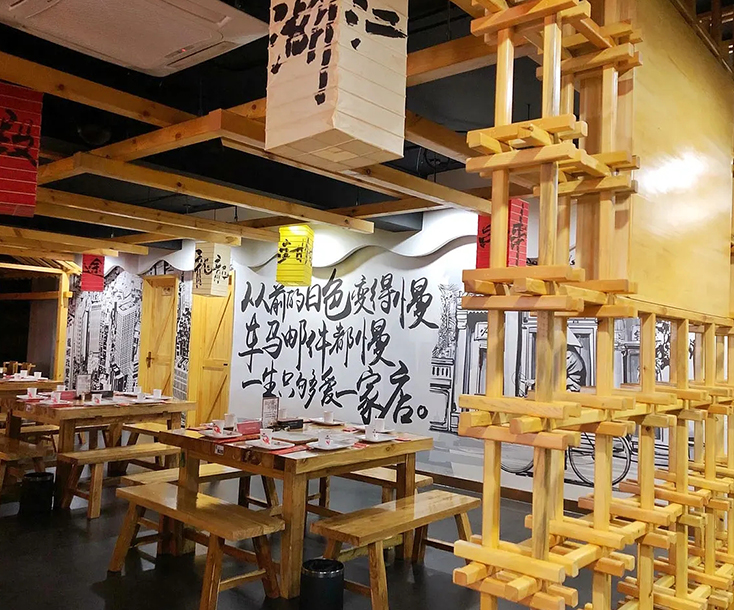 江湖
途
龍龍
从前的日色变得慢
车马邮件都慢
一生只够爱一家店。